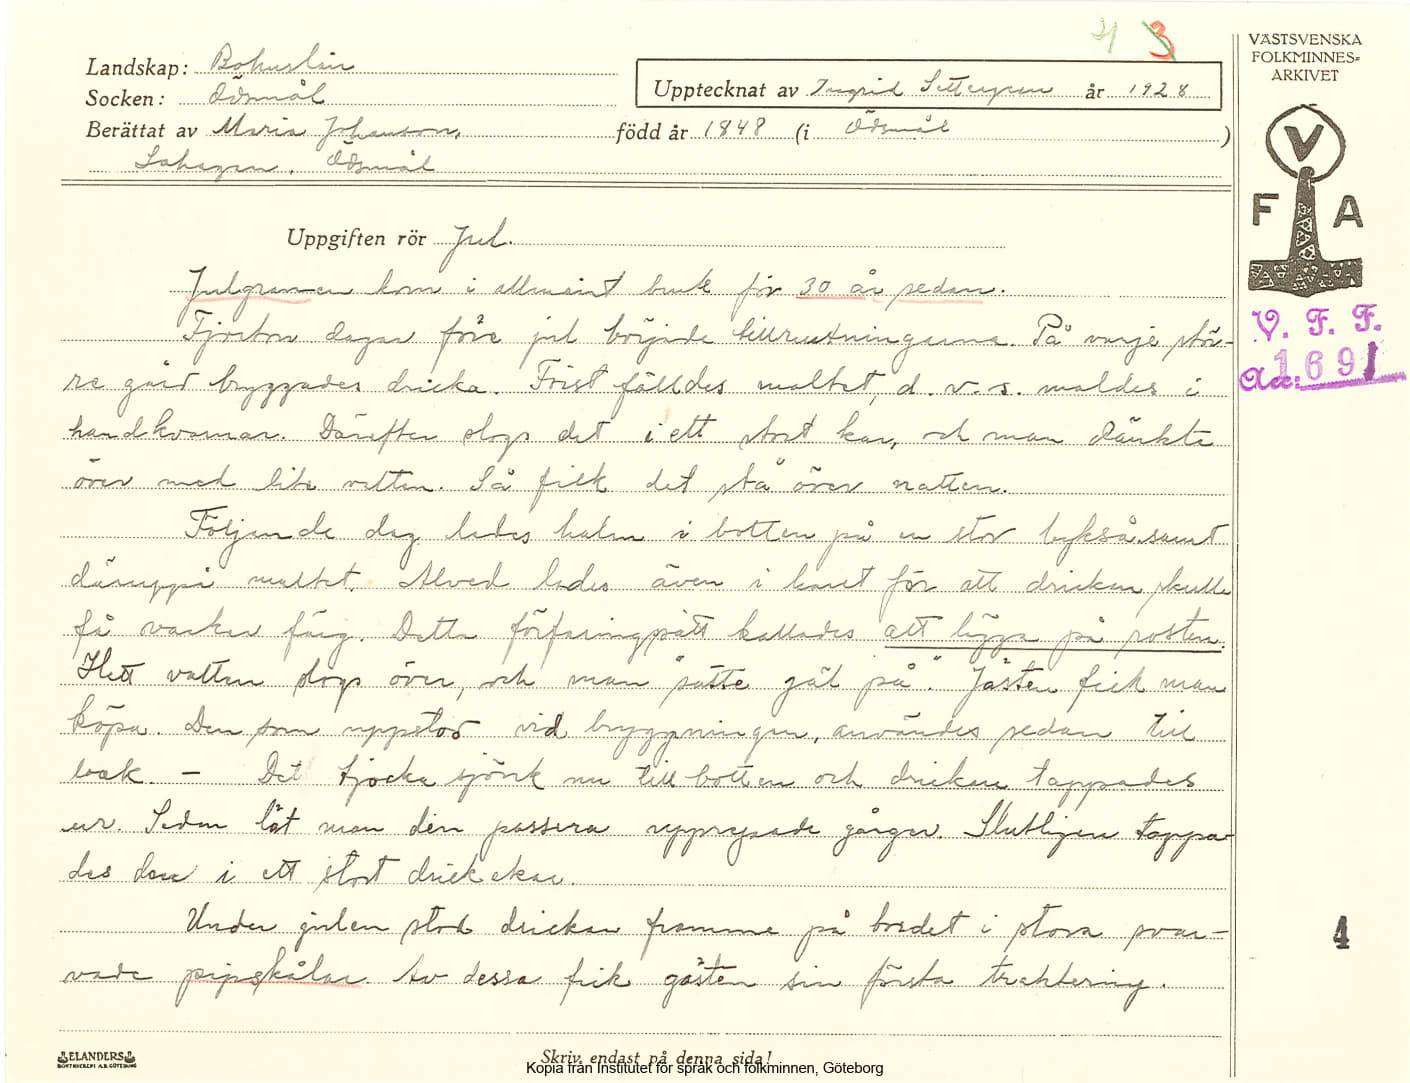 4 3
VÄSTSVENSKA
FOLKMINNES=
ARKIVET
Landskap: Bohuslän
Socken: Ödsmål
Upptecknat av Ingrid år 1928
Berättat av Maria Johansson, född år 1848 (i Ödsmål )
Ödsmål
V
F A
Uppgiften rör Jul.
Julgranen kom i allmänt bruk för 30 år sedan.
Fjorton dagar före jul började tillrustningarna. På varje stör-
re gård bryggdes dricka. Först fälldes maltet, d. v. s. maldes i
handkvarnar. Därefter slogs det i ett stort kar, och man dänkte
över med lite vatten. Så fick det stå över natten.
Följande dag lades halm i botten på en stor bykså samt
däruppå maltet. Alved lades även i karet för att drickan skulle
få vacker färg. Detta förfaringssätt kallades att lägga på rosten.
Hett vatten slogs över, och man "satte gäl på". Jästen fick man
köpa. Den som uppstod vid bryggningen, användes sedan till
bak. - Det tjocka sjönk nu till botten och drickan tappades
ur. Sedan lät man den passera upprepade gånger. Slutligen tappa-
des den i ett stort drickekar.
Under julen stod drickan framme på bordet i stora svar-
vade pipskålar. Av dessa fick gästen sin första traktering.
V. F. F.
Acc: 1691
4
ELANDERS
BOKTRYCKERI A.B. GÖTEBORG
Skriv endast på denna sida!
Kopia från Institutet för språk och folkminnen, Göteborg